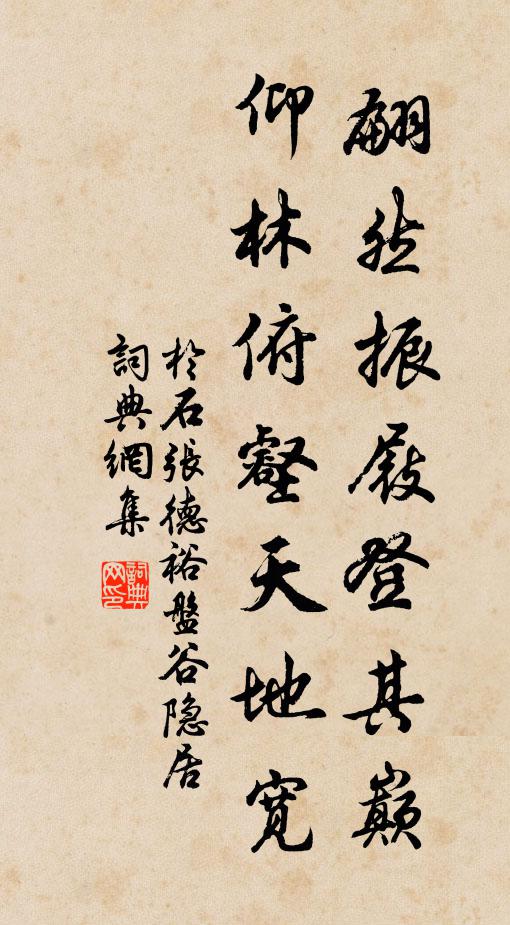 翩然振屐登其巔
仰林俯壑天地寬
於石張德裕盤谷隐居
詞典網集
詞典网印